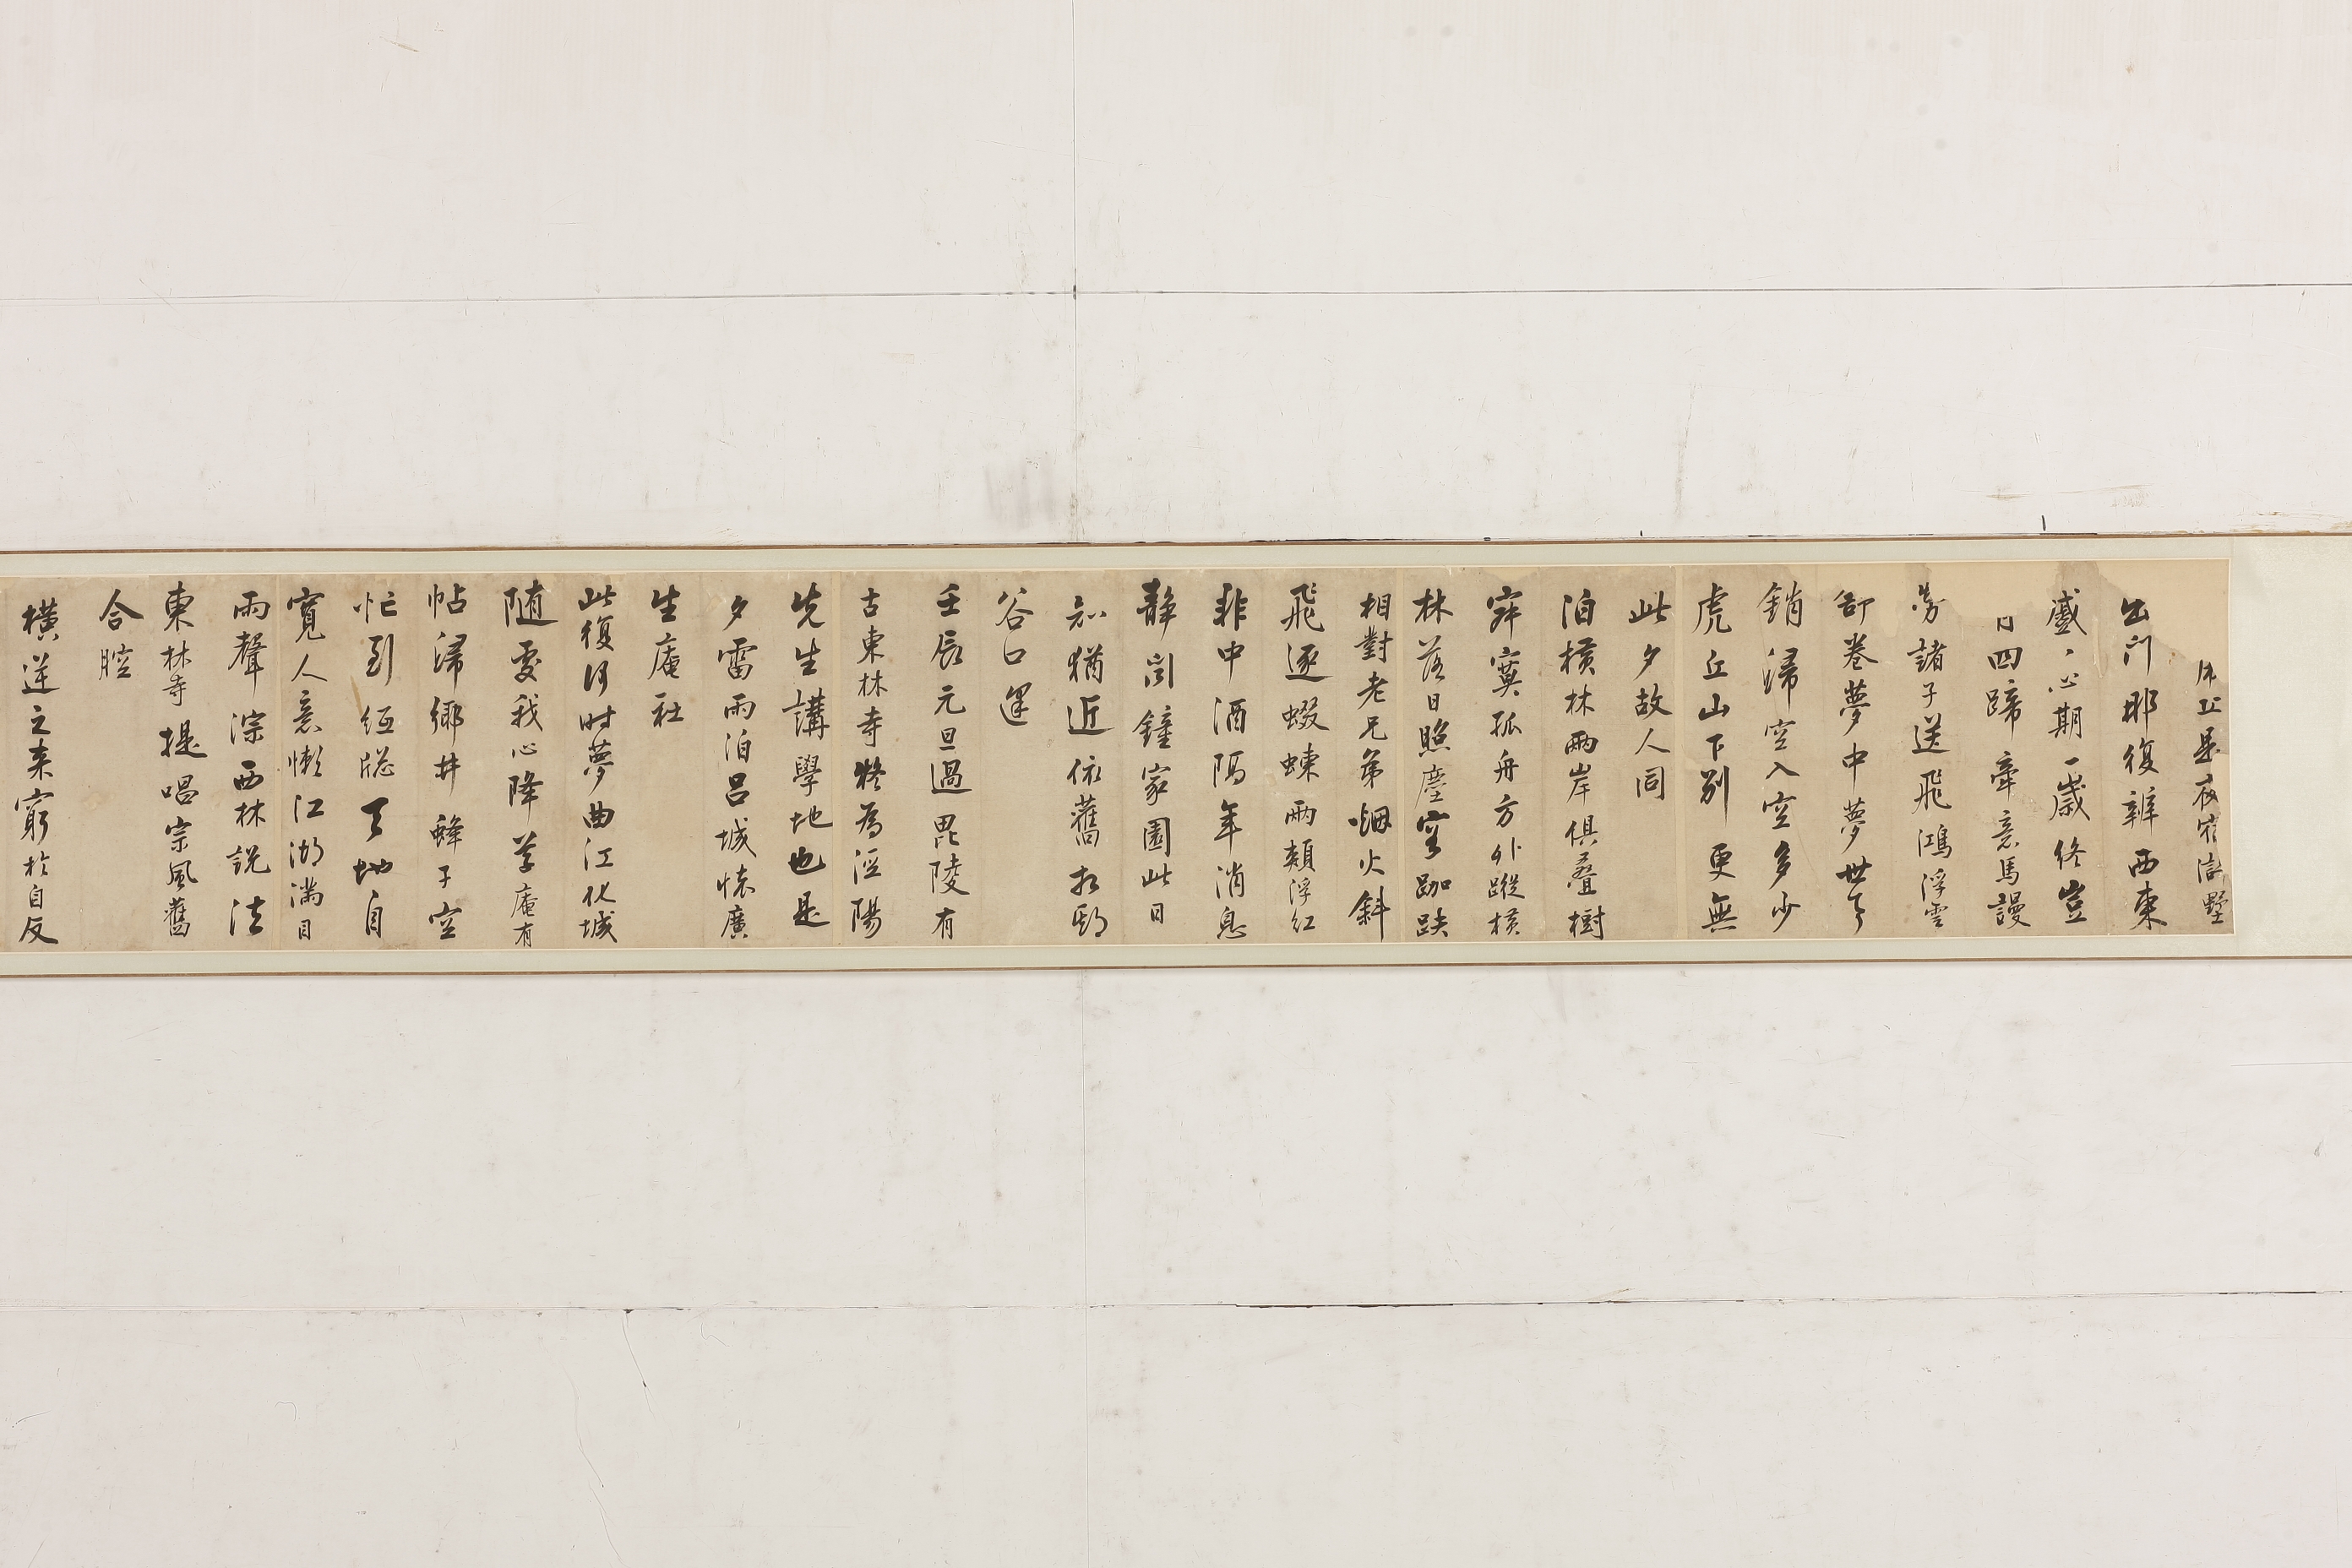 丘是夜宿滸墅
出門那復辨西東
蹙〻心期一歲終豈
日四蹄牽意馬謾
勞諸子送飛鴻浮雲
舒卷夢中夢世事
銷歸空入空多少
虎丘山下別更無
此夕故人同
泊橫林兩岸俱疊樹
寂寞孤舟方外蹤橫
林落日照塵容跏趺
相對老兄弟烟火斜
飛逐蝃蝀兩頰浮紅
非中酒隔年消息
靜聞鐘家園此日
知猶近依舊相
谷口逢
壬辰元旦過毘陵有
古東林寺將為涇陽
先生講學地也是
夕雷雨泊呂城懷廣
生庵社
此復何時夢曲江化城
隨處我心降草庵有
帖歸鄉井蜂子空
忙到紙窓天地自
寬人意懶江湖滿目
雨聲淙西林說法
東林寺提唱宗風舊
合腔
橫逆之来窮於自反